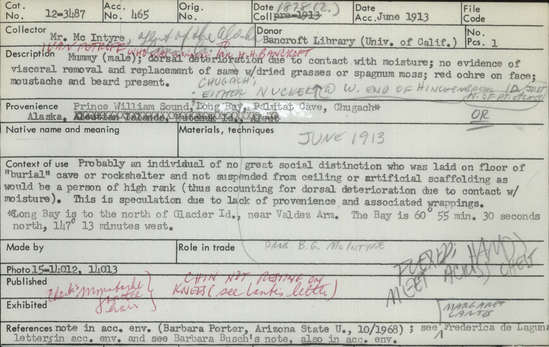 Cat. No. 12-3487 Acc. No. 465 Orig. No. Date Coll. pre-1913 1878(?) Date Acc. June 1913 File Code
Collector Mr. Mc Intyre, Agent of the Alaska Donor Bancroft Library (Univ. of Calif.) No. Pcs. 1
H.H. BANCROFT
Description Mummy (male); dorsal deterioration due to contact with moisture; no evidence of
visceral removal and replacement of same w/dried grasses or spagnum moss; red ochre on face;
moustache and beard present. CHUGACH, EITHER NUCHEK W. END OF HINCHENBROOK ID
Provenience Prince William Sound, Long Bay, Palutat Cave, Chugach*
Alaska, Aleutian Islands, Aleut OR
Native name and meaning Materials, techniques JUNE 1913
Context of use Probably an individual of no great social distinction who was laid on floor of
"burial" cave or rockshelter and not suspended from ceiling or artificial scaffolding as
would be a person of high rank (thus accounting for dorsal deterioration due to contact w/
moisture). This is speculation due to lack of provenience and associated wrappings.
*Long Bay is to the north of Glacier Id., near Valdes Arm. The Bay is 60° 55 min. 30 seconds
north, 147° 13 minutes west.
Made by Role in trade B.G. McINTYRE
Photo 15-14012, 14013
Published CHIN NOT RESTING ON
KNEES (see Lantis letter)
Exhibited
MARGARET
LANTIS
References note in acc. env. (Barbara Porter, Arizona State U., 10/1968); see Frederica de Laguna
letter in acc. env. and see Barbara Busch's note, also in acc. env.